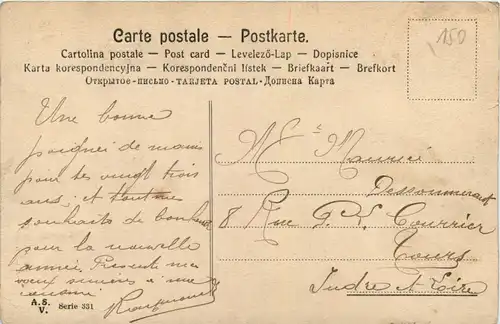 Carte postale — Postkarte.
Cartolina postale — Post card — Levelező-Lap — Dopisnice
Karta korespondencyjna — Korespondenční lístek — Briefkaart — Brefkort
Открытое-письмо - TARJETA POSTAL - Дописна Карта
150
Une bonne
poignée de mains
pour tes vingt trois
ans, et
souhaits de bonheur
pour la nouvelle
année. Présente mes
à une
A.S.
V.
Serie 331
Mr Maurice
8 Rue P. L. Courrier
Tours
Indre et Loire